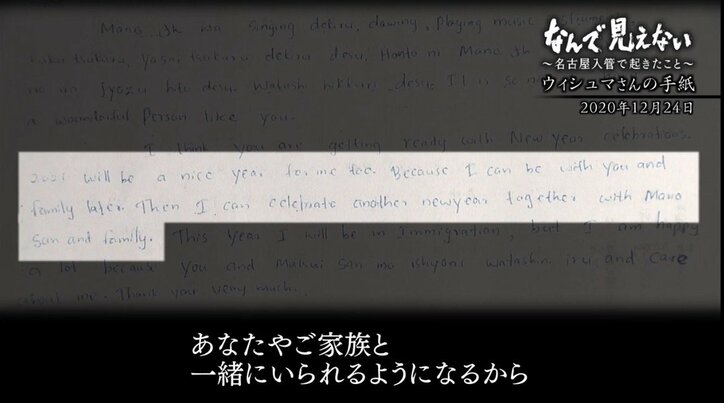 なんで見えない
〜名古屋入管で起きたこと〜
ウィシュマさんの手紙
2020年12月24日
singing dekiru, dawing, playing music
tsukuru, Yasai tsukuru dekiru desu, Honto ni Mano
Jyozu hto desu watashi bikkuri desu. It is so
a woomdeiful person like you.
I think you are getting ready with New year celebrations.
2021 will be a nice year for me too. Because I can be with you and
family later. Then I can celebrate another newyear together with Mano
San and family. This year I will be in Immigration, but I am happy
a lot because you and Makui san mo ishyoni watashini iru and care
about me. Thank you veuy much.
あなたやご家族と
一緒にいられるようになるから